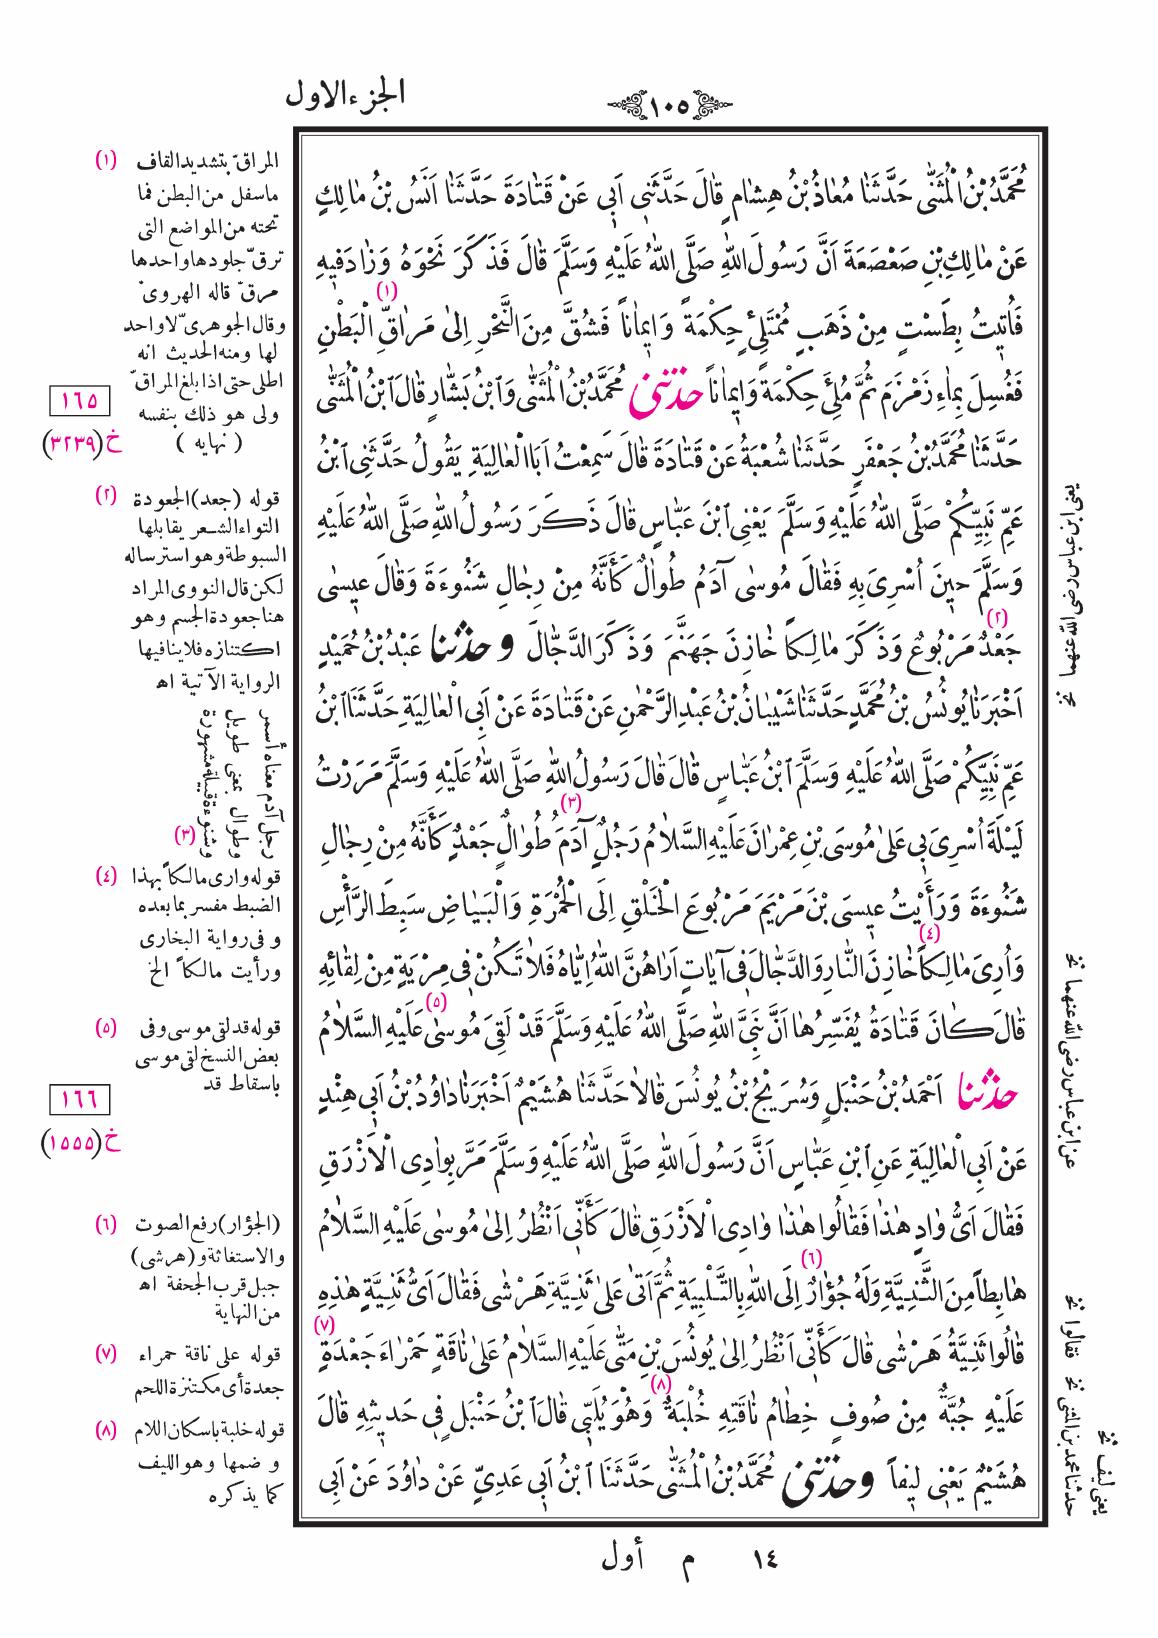 ١٠٥
الجزء الاول
مُحَمَّدُ بْنُ الْمُثَنّٰى حَدَّثَنَا مُعَاذُ بْنُ هِشَامٍ قَالَ حَدَّثَنِى اَبِى عَنْ قَتَادَةَ حَدَّثَنَا اَنَسُ بْنُ مَالِكٍ
عَنْ مَالِكِ بْنِ صَعْصَعَةَ اَنَّ رَسُولَ اللهِ صَلَّى اللهُ عَلَيْهِ وَسَلَّمَ قَالَ فَذَكَرَ نَحْوَهُ وَزَادَ فِيهِ
فَاُتِيتُ بِطَسْتٍ مِنْ ذَهَبٍ مُمْتَلِئٍ حِكْمَةً وَاِيمَاناً فَشُقَّ مِنَ النَّحْرِ اِلىٰ مَرَاقِّ (١) الْبَطْنِ
فَغُسِلَ بِمَاءِ زَمْزَمَ ثُمَّ مُلِئَ حِكْمَةً وَاِيمَاناً حدثنى مُحَمَّدُ بْنُ الْمُثَنّٰى وَابْنُ بَشَّارٍ قَالَ ابْنُ الْمُثَنّٰى
حَدَّثَنَا مُحَمَّدُ بْنُ جَعْفَرٍ حَدَّثَنَا شُعْبَةُ عَنْ قَتَادَةَ قَالَ سَمِعْتُ اَبَا الْعَالِيَةِ يَقُولُ حَدَّثَنِى ابْنُ
عَمِّ نَبِيِّكُمْ صَلَّى اللهُ عَلَيْهِ وَسَلَّمَ يَعْنِى ابْنَ عَبَّاسٍ قَالَ ذَكَرَ رَسُولُ اللهِ صَلَّى اللهُ عَلَيْهِ
وَسَلَّمَ حِينَ اُسْرِىَ بِهِ فَقَالَ مُوسٰى آدَمُ طُوَالٌ كَأَنَّهُ مِنْ رِجَالِ شَنُوءَةَ وَقَالَ عِيسٰى
جَعْدٌ (٢) مَرْبُوعٌ وَذَكَرَ مَالِكاً خَازِنَ جَهَنَّمَ وَذَكَرَ الدَّجَّالَ وحدثنا عَبْدُ بْنُ حُمَيْدٍ
اَخْبَرَنَا يُونُسُ بْنُ مُحَمَّدٍ حَدَّثَنَا شَيْبَانُ بْنُ عَبْدِ الرَّحْمٰنِ عَنْ قَتَادَةَ عَنْ اَبِى الْعَالِيَةِ حَدَّثَنَا ابْنُ
عَمِّ نَبِيِّكُمْ صَلَّى اللهُ عَلَيْهِ وَسَلَّمَ ابْنُ عَبَّاسٍ قَالَ قَالَ رَسُولُ اللهِ صَلَّى اللهُ عَلَيْهِ وَسَلَّمَ مَرَرْتُ
لَيْلَةَ اُسْرِىَ بِى عَلىٰ مُوسَى بْنِ عِمْرَانَ عَلَيْهِ السَّلَامُ رَجُلٌ آدَمُ (٣) طُوَالٌ جَعْدٌ كَأَنَّهُ مِنْ رِجَالِ
شَنُوءَةَ وَرَأَيْتُ عِيسَى بْنَ مَرْيَمَ مَرْبُوعَ الْخَلْقِ اِلَى الْحُمْرَةِ وَالْبَيَاضِ سَبِطَ الرَّأْسِ
وَاُرِىَ مَالِكاً (٤) خَازِنَ النَّارِ وَالدَّجَّالَ فِى آيَاتٍ اَرَاهُنَّ اللهُ اِيَّاهُ فَلَا تَكُنْ فِى مِرْيَةٍ مِنْ لِقَائِهِ
قَالَ كَانَ قَتَادَةُ يُفَسِّرُهَا اَنَّ نَبِىَّ اللهِ صَلَّى اللهُ عَلَيْهِ وَسَلَّمَ قَدْ لَقِىَ (٥) مُوسٰى عَلَيْهِ السَّلَامُ
حدثنا اَحْمَدُ بْنُ حَنْبَلٍ وَسُرَيْجُ بْنُ يُونُسَ قَالَا حَدَّثَنَا هُشَيْمٌ اَخْبَرَنَا دَاوُدُ بْنُ اَبِى هِنْدٍ
عَنْ اَبِى الْعَالِيَةِ عَنِ ابْنِ عَبَّاسٍ اَنَّ رَسُولَ اللهِ صَلَّى اللهُ عَلَيْهِ وَسَلَّمَ مَرَّ بِوَادِى الْاَزْرَقِ
فَقَالَ اَىُّ وَادٍ هٰذَا فَقَالُوا هٰذَا وَادِى الْاَزْرَقِ قَالَ كَأَنِّى اَنْظُرُ اِلىٰ مُوسٰى عَلَيْهِ السَّلَامُ
هَابِطاً مِنَ الثَّنِيَّةِ وَلَهُ جُؤَارٌ (٦) اِلَى اللهِ بِالتَّلْبِيَةِ ثُمَّ اَتٰى عَلىٰ ثَنِيَّةِ هَرْشٰى فَقَالَ اَىُّ ثَنِيَّةٍ هٰذِهِ
قَالُوا ثَنِيَّةُ هَرْشٰى قَالَ كَأَنِّى اَنْظُرُ اِلىٰ يُونُسَ بْنِ مَتّٰى عَلَيْهِ السَّلَامُ عَلىٰ نَاقَةٍ حَمْرَاءَ جَعْدَةٍ (٧)
عَلَيْهِ جُبَّةٌ مِنْ صُوفٍ خِطَامُ نَاقَتِهِ خُلْبَةٌ (٨) وَهُوَ يُلَبِّى قَالَ ابْنُ حَنْبَلٍ فِى حَدِيثِهِ قَالَ
هُشَيْمٌ يَعْنِى لِيفاً وحدثنى مُحَمَّدُ بْنُ الْمُثَنّٰى حَدَّثَنَا ابْنُ اَبِى عَدِىٍّ عَنْ دَاوُدَ عَنْ اَبِى
(١) المراقّ بتشديد القاف
ماسفل من البطن فما
تحته من المواضع التى
ترقّ جلودها واحدها
مرقّ قاله الهروىّ
وقال الجوهرىّ لا واحد
لها ومنه الحديث انه
اطلى حتى اذا بلغ المراقّ
ولى هو ذلك بنفسه
( نهايه )
١٦٥
خ (٣٢٣٩)
(٢) قوله (جعد) الجعودة
التواء الشعر يقابلها
السبوطة وهو استرساله
لكن قال النووى المراد
هنا جعودة الجسم وهو
اكتنازه فلا ينافيها
الرواية الآتية اه
(٣) رجل آدم معناه أسمر
وطوال بمعنى طويل
وشنوءة قبيلة مشهورة
(٤) قوله وارى مالكاً بهذا
الضبط مفسر بما بعده
وفى رواية البخارى
ورأيت مالكاً الخ
(٥) قوله قد لقى موسى وفى
بعض النسخ لقى موسى
باسقاط قد
١٦٦
خ (١٥٥٥)
(٦) (الجؤار) رفع الصوت
والاستغاثة و(هرشى)
جبل قرب الجحفة اه
من النهاية
(٧) قوله على ناقة حمراء
جعدة أى مكتنزة اللحم
(٨) قوله خلبة باسكان اللام
و ضمها وهو الليف
كما يذكره
يعنى ابن عباس رضى الله عنهما
عن ابن عباس رضى الله عنهما نخ
فقالوا نخ
حدثنا محمد بن المثنى نخ
يعنى ليف نخ
١٤ م أول